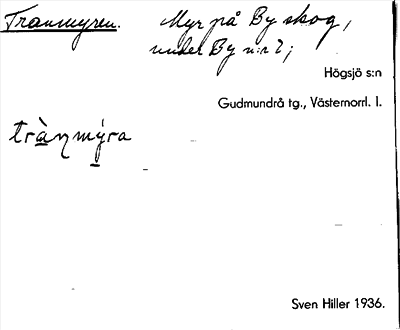 Tranmyren. Myr på By skog,
under By n:r 2;
Högsjö s:n
Gudmundrå tg., Västernorrl. l.
trànmýra
Sven Hiller 1936.